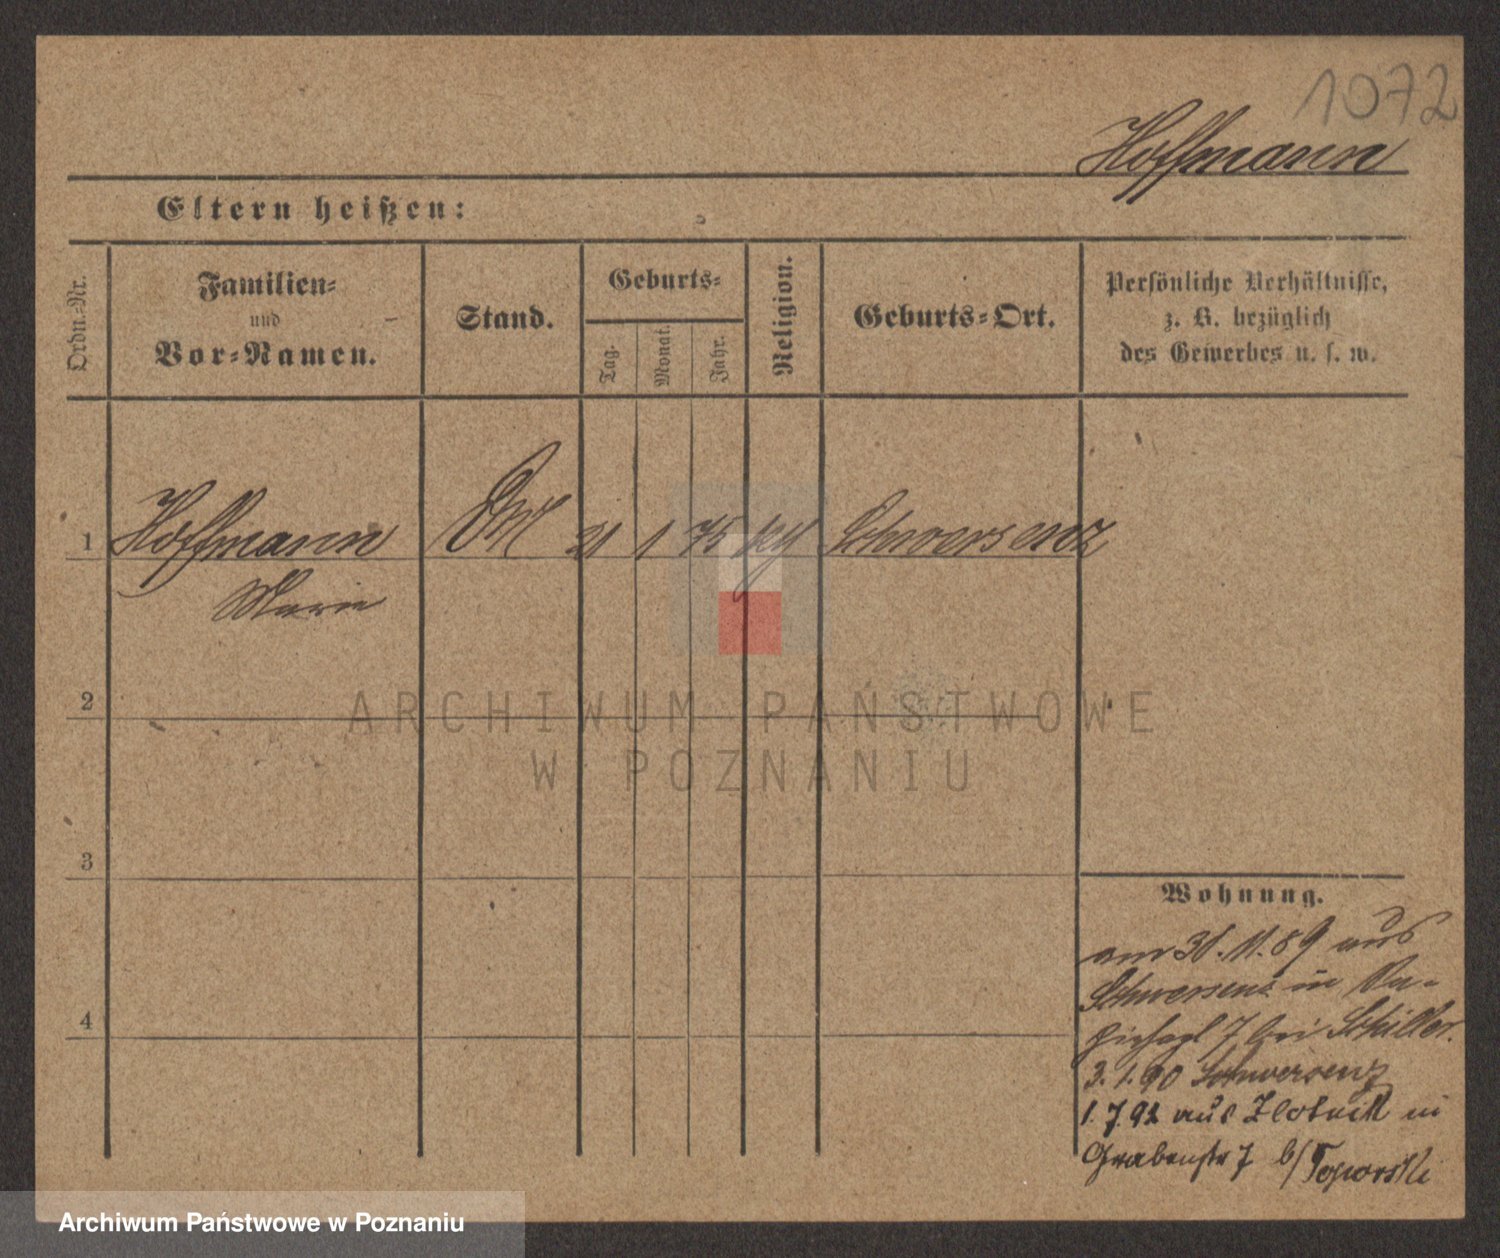 1072
Hoffmann
Eltern heißen:
Ordn.-Nr.
Familien-
und
Vor-Namen.
Stand.
Geburts-
Tag.
Monat.
Jahr.
Religion.
Geburts-Ort.
Persönliche Verhältnisse,
z. B. bezüglich
des Gewerbes u. s. w.
1 Hoffmann DM 21 1 75 Schwersenz
Marie
2
3
4
ARCHIWUM PAŃSTWOWE
W POZNANIU
Wohnung.
am 11.89 aus
Schwersenz in
7 bei Schiller.
3.1.90 Schwersenz
1.7.92 aus Zlotnik in
Grabenstr 7 b/
Archiwum Państwowe w Poznaniu